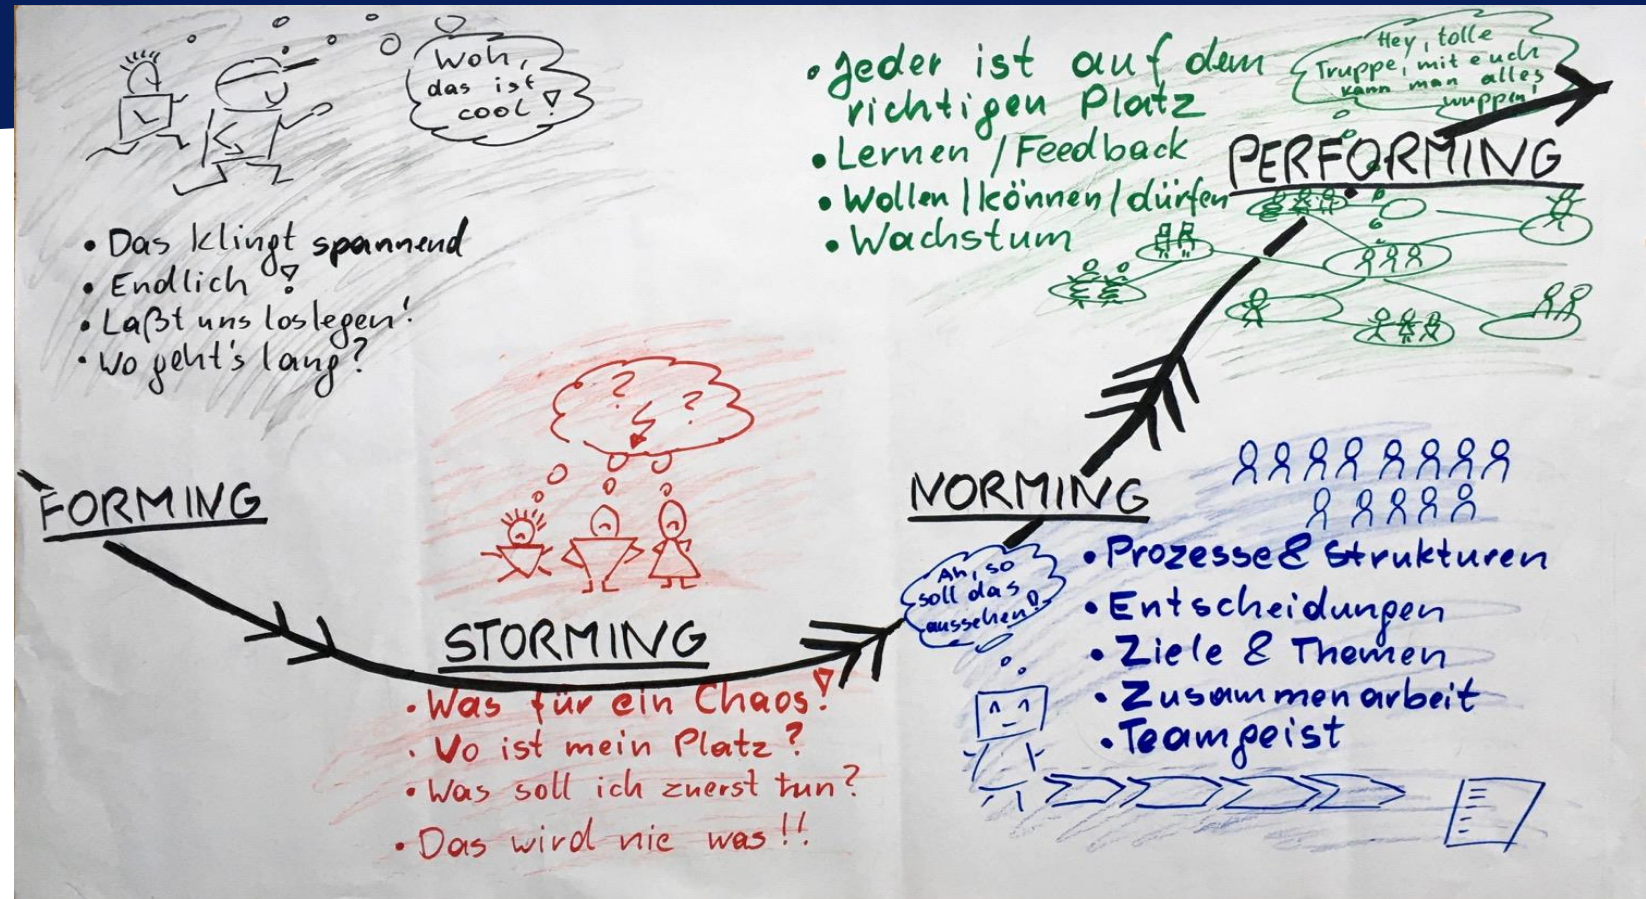 Woh,
das ist
cool!
• Das klingt spannend
• Endlich!
• Laßt uns loslegen!
• Wo geht's lang?
FORMING
? ?
STORMING
• Was für ein Chaos!
• Wo ist mein Platz?
• Was soll ich zuerst tun?
• Das wird nie was!!
NORMING
Ah, so
soll das
aussehen!
• Prozesse & Strukturen
• Entscheidungen
• Ziele & Themen
• Zusammenarbeit
• Teamgeist
• Jeder ist auf dem
richtigen Platz
• Lernen / Feedback
• Wollen / können / dürfen
• Wachstum
Hey, tolle
Truppe, mit euch
kann man alles
wuppen!
PERFORMING